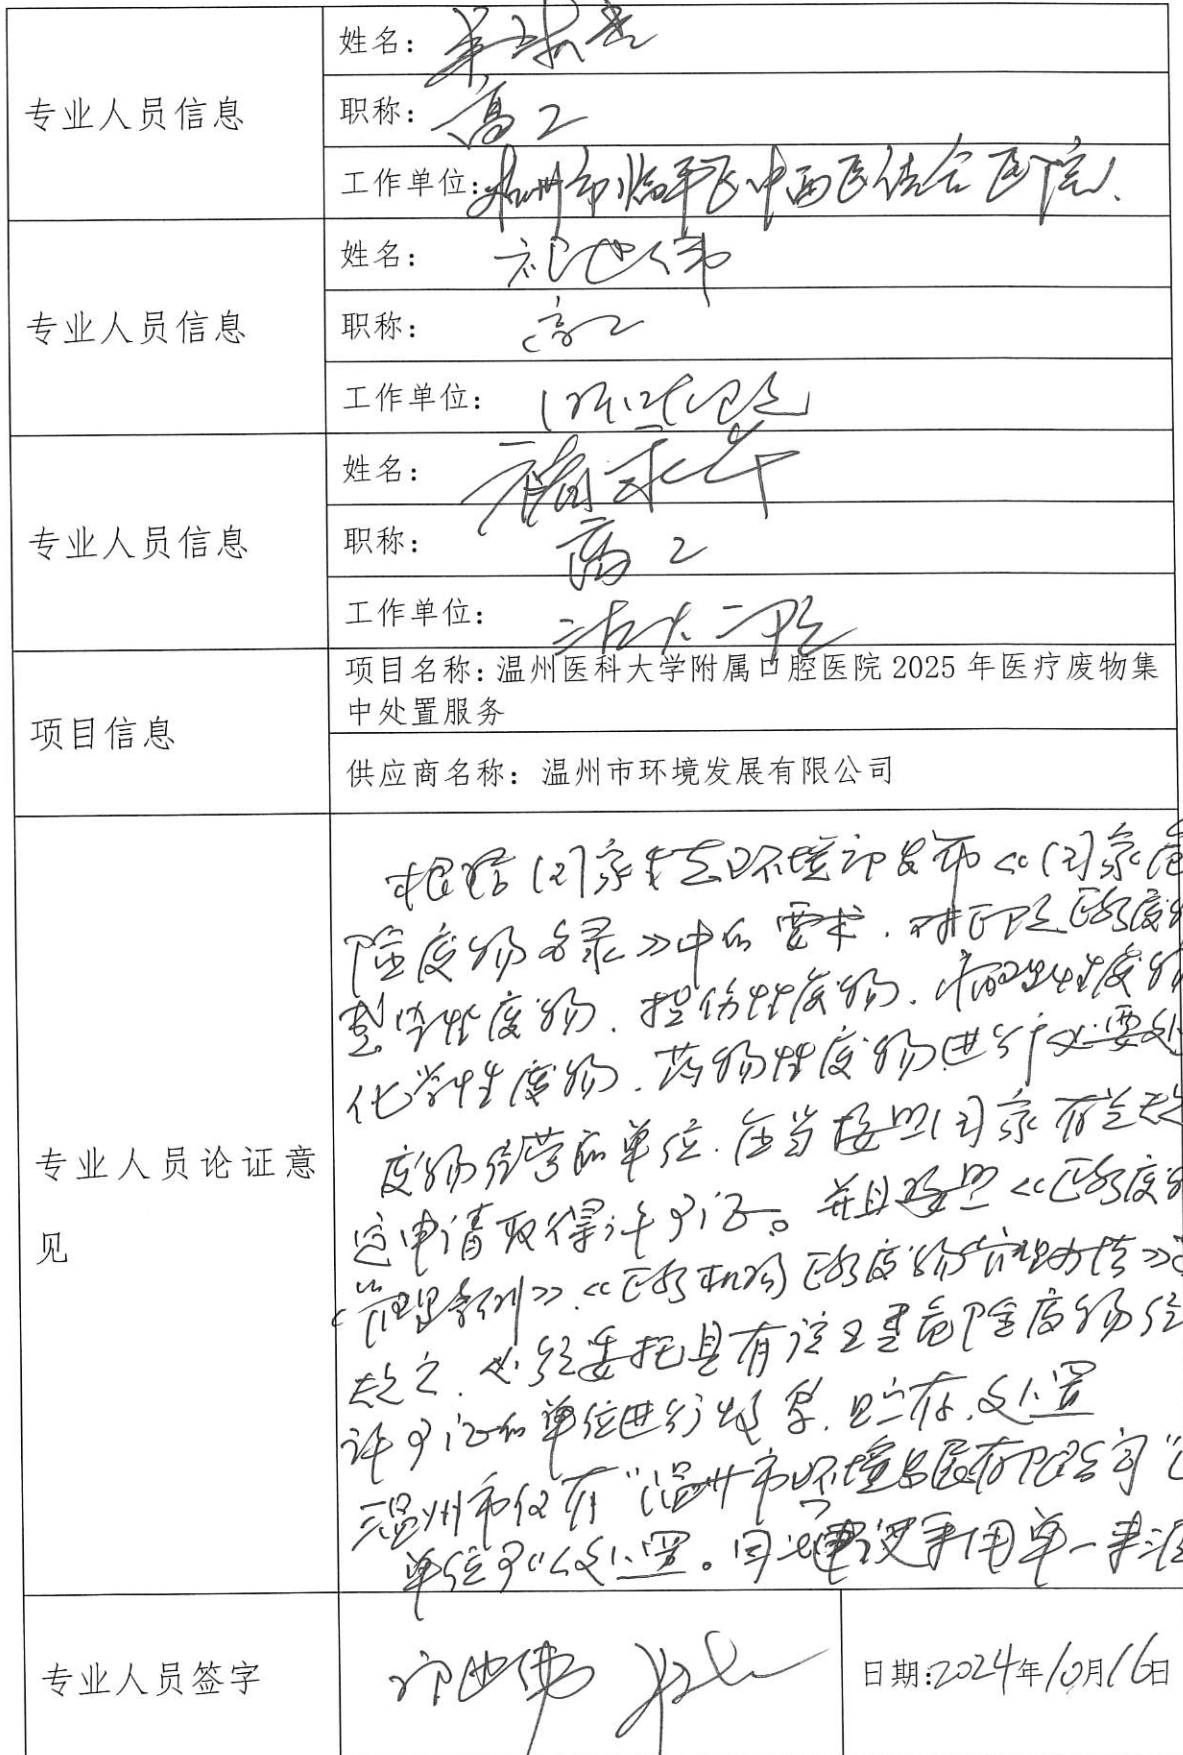 专业人员信息
姓名：
职称：高工
工作单位：杭州市临平区中西医结合医院
专业人员信息
姓名：
职称：高工
工作单位：
专业人员信息
姓名：
职称：高工
工作单位：
项目信息
项目名称：温州医科大学附属口腔医院 2025 年医疗废物集
中处置服务
供应商名称：温州市环境发展有限公司
专业人员论证意
见
根据国家生态环境部发布《国家危
险废物名录》中的要求．对医院医疗废物
感染性废物．损伤性废物．病理性废物
化学性废物．药物性废物进行必要处
废物经营的单位．应当按照国家有关规
定申请取得许可证。并且按照《医疗废物
管理条例》．《医疗机构医疗废物管理办法》
规定．必须委托具有该类危险废物经
许可证的单位进行收集．贮存．处置
温州市仅有“温州市环境发展有限公司”
单位可以处置。因此建议采用单一来源
专业人员签字
日期:2024年10月16日